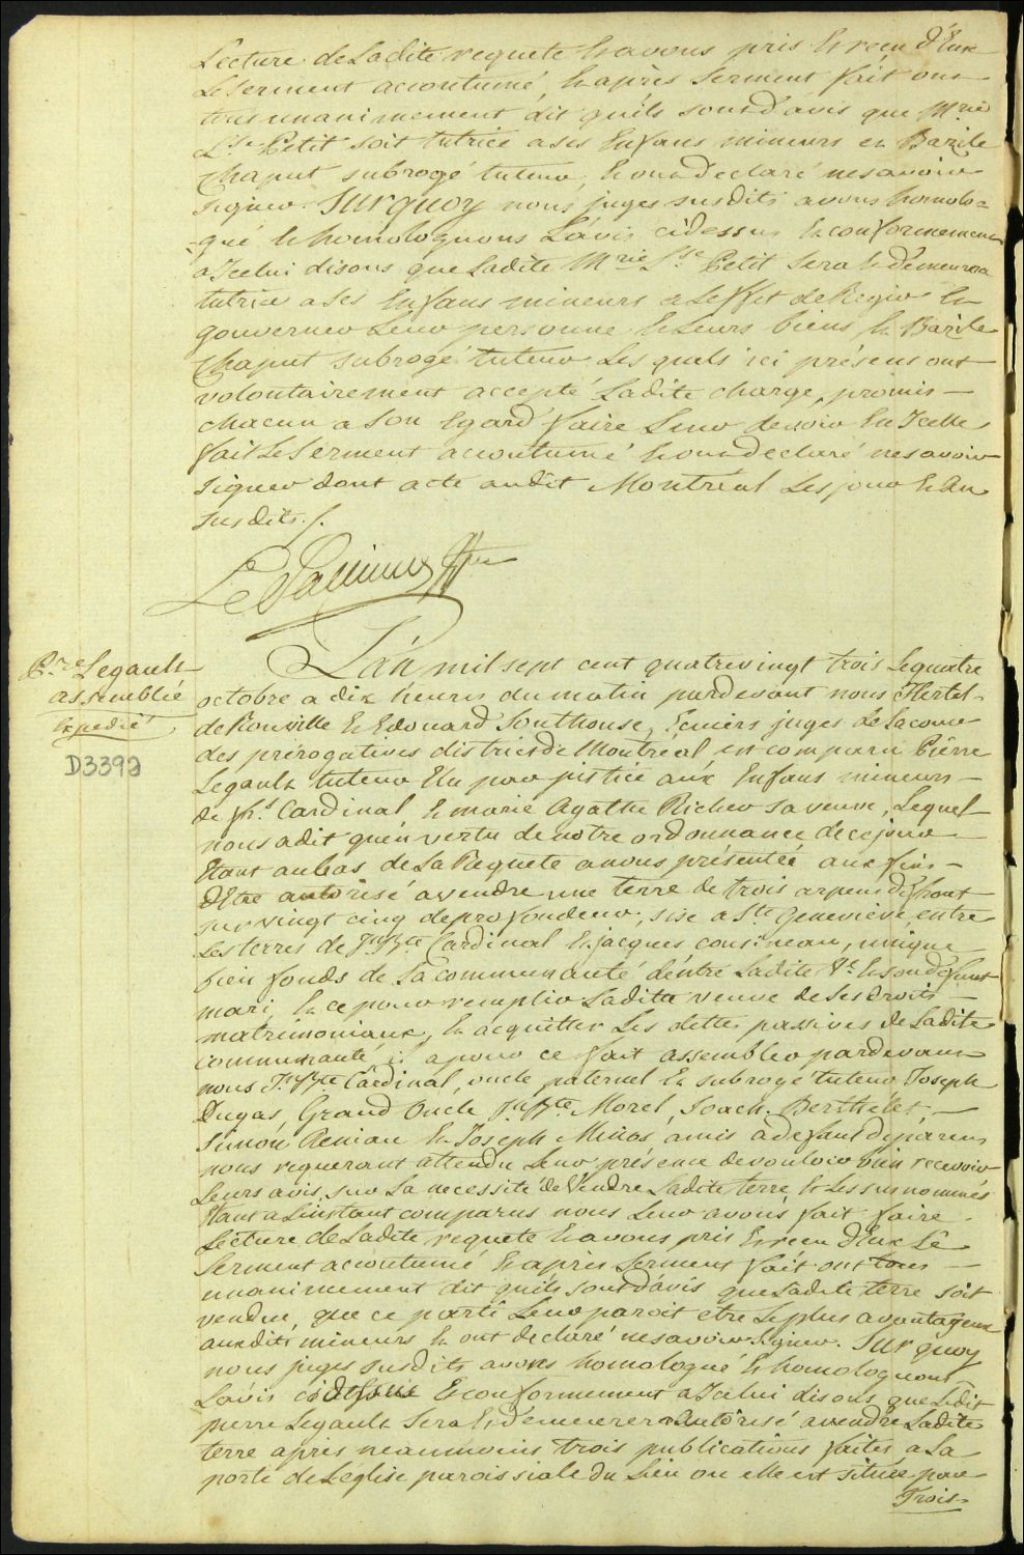 Lecture de Ladite requete & avons pris & reçu d'Eux
Le Serment accoutumé, & après Serment fait ont
tous unanimement dit quils sont d'avis que Mrie
Lse Petit soit tutrice a ses Enfans mineurs et Bazile
Chaput subrogé tuteur, & ont declaré ne savoir
signer. Surquoy nous juges susdits avons homolo=
=gué & homologuons L'avis cidessus & conformement
a Icelui disons que Ladite Mrie Lse Petit Sera & demeurera
tutrice a ses Enfans mineurs a Leffet de Regir &
gouverner Leur personne & Leurs biens & Bazile
Chaput subrogé tuteur Les quels ici présens ont
volontairement accepté Ladite charge, promis —
chacun a Son Egard faire Leur devoir En Icelle
fait Le Serment accoutumé & ont declaré ne savoir
signer dont acte audit Montréal Les jour & An
susdits ./.
Le Pailleur Gffier
Pre Legault
assemblée
Expedié
D3392
L'an mil sept cent quatrevingt trois Le quatre
octobre a dix heures du matin pardevant nous Hertel
de Rouville & Edouard Southouse, Ecuiers juges de La cour
des prérogatives district de Montréal est comparu Pierre
Legault tuteur Elu par justice aux Enfans mineurs —
de Cardinal, & marie Agathe Richer sa veuve, Lequel
nous a dit qu'en vertu de notre ordonnance de ce jour
Etant au bas de La Requete a nous présentée aux fins —
d'Etre autorisé a vendre une terre de trois arpens de front
sur vingt cinq de profondeur, sise a Ste Genevieve, entre
Les terres de Jn Bte Cardinal & jacques cousineau, unique
bien fonds de La communauté d'entre Ladite Ve & son defunt
mari, & ce pour remplir Ladite veuve de Ses droits —
matrimoniaux, & acquitter Les dettes passives de Ladite
communauté il a pour ce fait assembler pardevant
nous Jn Bte Cardinal, oncle paternel & subrogé tuteur Joseph
Dugas, Grand Oncle Jn Bte Morel, Joach. Berthelet, —
Simon & Joseph Minos amis a defaut de parens
nous requerant attendu Leur présence de vouloir bien recevoir
Leurs avis sur La necessité de Vendre Ladite terre & Les susnommés
Etant a L'instant comparus nous Leur avons fait faire
Lecture de Ladite requete & avons pris & reçu d'Eux Le
Serment accoutumé & après Serment fait ont tous —
unanimement dit quils sont d'avis que Ladite terre soit
vendue, que ce parti Leur paroit etre Le plus avantageux
auxdits mineurs & ont declaré ne savoir Signer. Surquoy
nous juges susdits avons homologué & homologuons
L'avis cidessus & conformement a Icelui disons que Ledit
pierre Legault Sera & demeurera autorisé a vendre Ladite
terre après neanmoins trois publications faites a La
porte de Leglise paroissiale du Lieu ou elle est située par
Trois